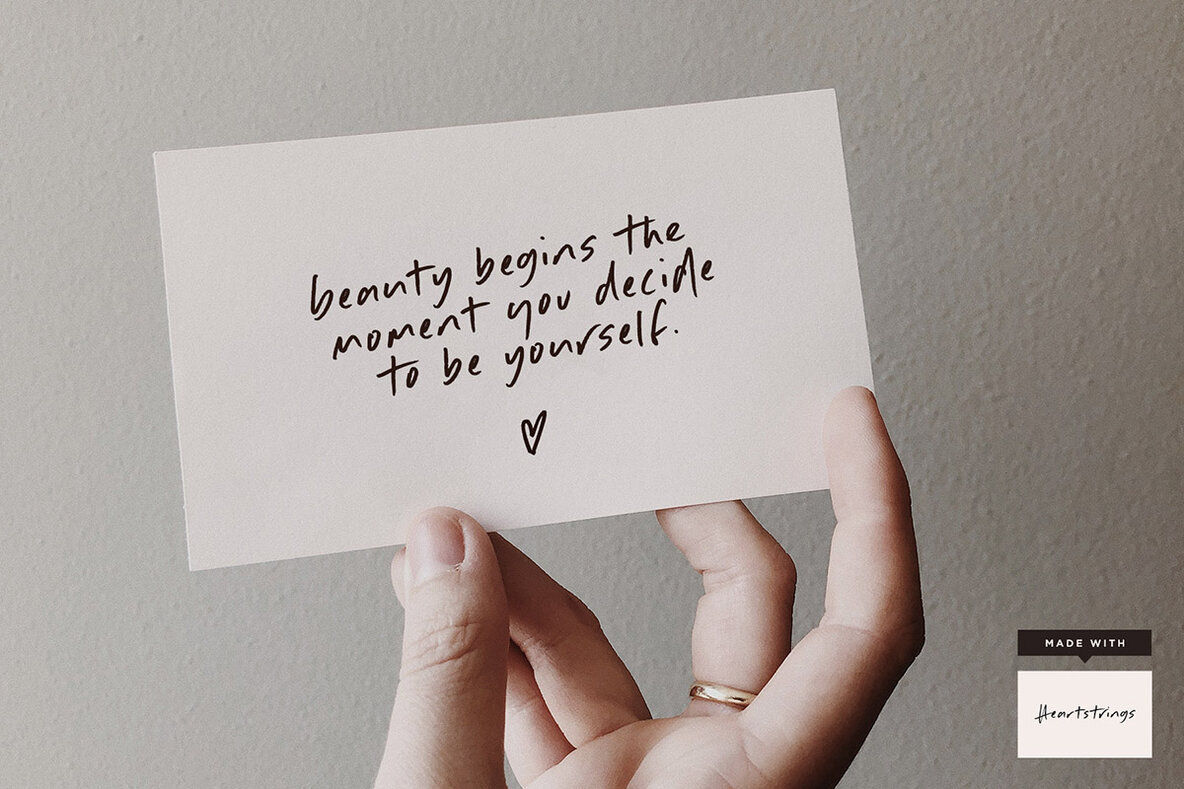 beauty begins the
moment you decide
to be yourself.
MADE WITH
Heartstrings